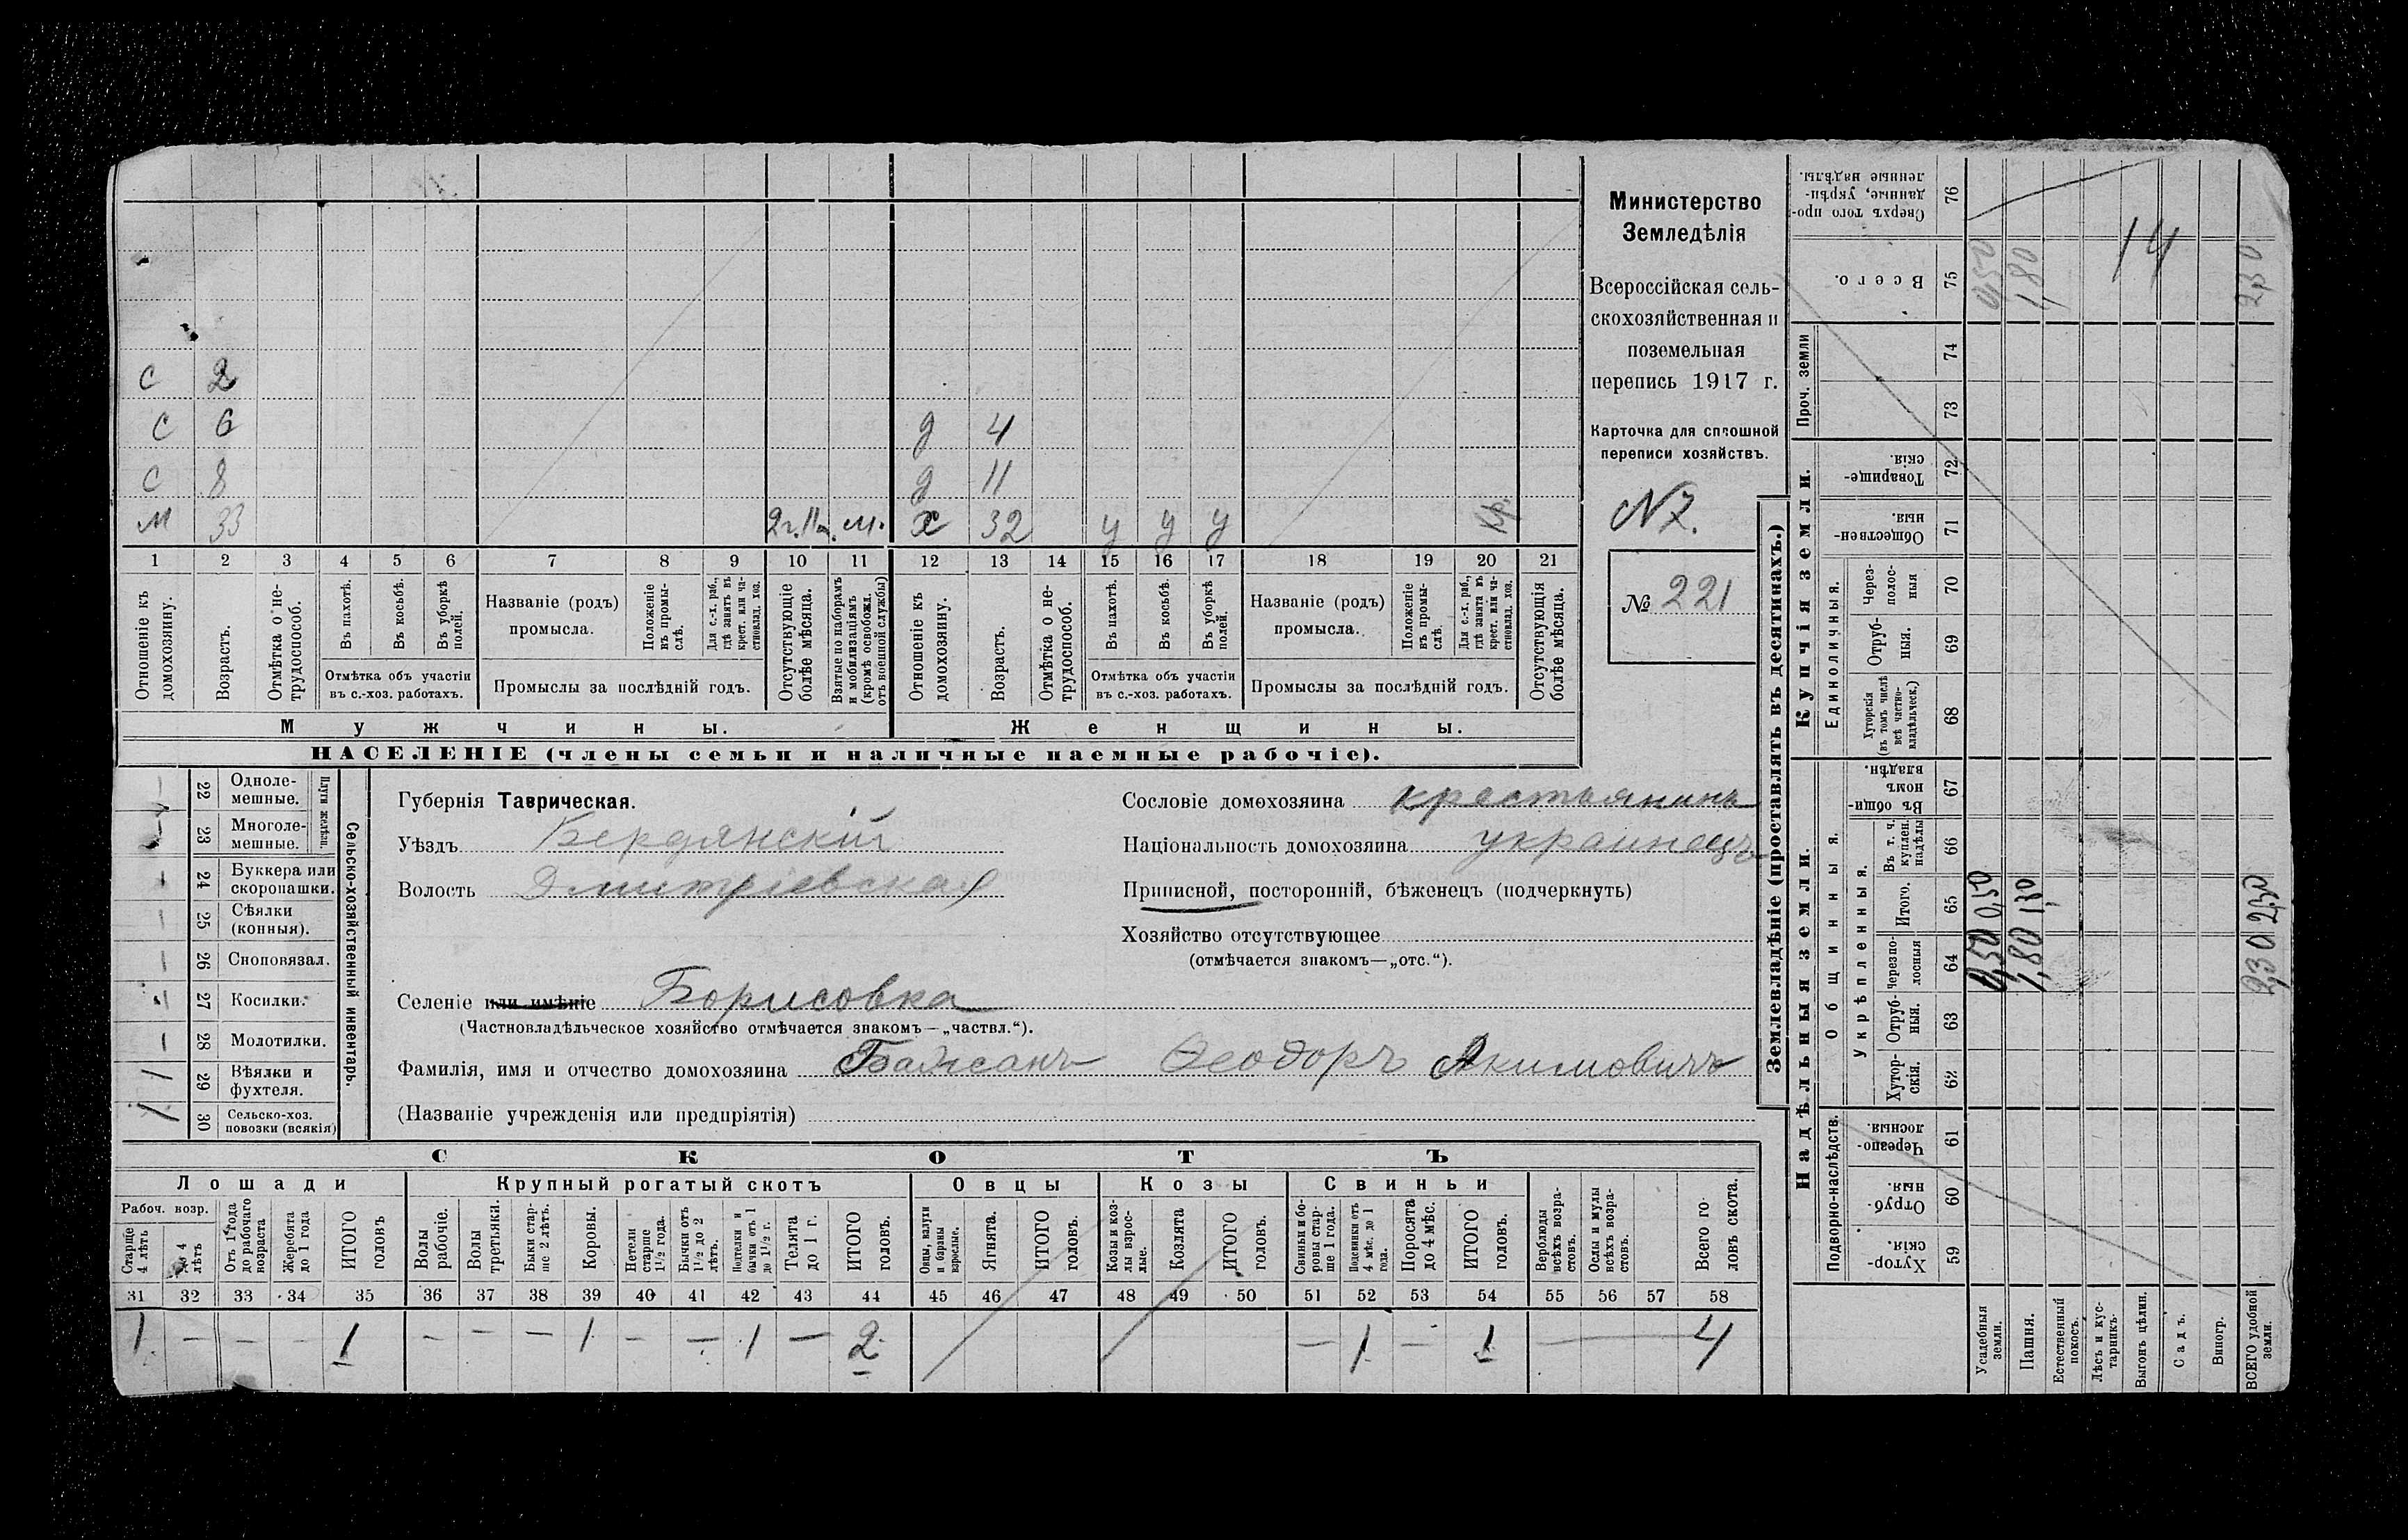 С 2
С 6 д 4
С 8 д 11
М 33 2 г. 11 м. м. х 32 у у у
1 2 3 4 5 6 7 8 9 10 11 12 13 14 15 16 17 18 19 20 21
Отношеніе къ домохозяину.
Возрастъ.
Отмѣтка о нетрудоспособ.
Въ пахотѣ.
Въ косьбѣ.
Въ уборкѣ полей.
Отмѣтка объ участіи
въ с.-хоз. работахъ.
Названіе (родъ)
промысла.
Положеніе въ промыслѣ.
Для с.-х. раб., гдѣ занятъ въ крест. или частновлад. хоз.
Промыслы за послѣдній годъ.
Отсутствующіе болѣе мѣсяца.
Взятые по наборамъ и мобилизаціямъ (кромѣ освобожд. отъ военной службы)
Отношеніе къ домохозяину.
Возрастъ.
Отмѣтка о нетрудоспособ.
Въ пахотѣ.
Въ косьбѣ.
Въ уборкѣ полей.
Отмѣтка объ участіи
въ с.-хоз. работахъ.
Названіе (родъ)
промысла.
Положеніе въ промыслѣ
Для с.-х. раб., гдѣ занята въ крест. или частновлад. хоз.
Промыслы за послѣдній годъ.
Отсутствующія болѣе мѣсяца.
Мужчины. Женщины.
НАСЕЛЕНІЕ (члены семьи и наличные наемные рабочіе).
Министерство
Земледѣлія
Всероссійская сель-
скохозяйственная и
поземельная
перепись 1917 г.
Карточка для сплошной
переписи хозяйствъ.
N 7.
№ 221
Сельско-хозяйственный инвентарь.
Плуги желѣзн.
22 Одноле-
мешные.
23 Многоле-
мешные.
24 Буккера или
скоропашки.
25 Сѣялки
(конныя).
26 Сноповязал.
27 Косилки.
28 Молотилки.
1 29 Вѣялки и
фухтеля.
1 30 Сельско-хоз.
повозки (всякія)
Губернія Таврическая.
Уѣздъ Бердянскій
Волость Дмитріевская
Селеніе или имѣніе Борисовка
(Частновладѣльческое хозяйство отмѣчается знакомъ—„частвл.“).
Сословіе домохозяина крестьянинъ
Національность домохозяина украинецъ
Приписной, посторонній, бѣженецъ (подчеркнуть)
Хозяйство отсутствующее
(отмѣчается знакомъ—„отс.“).
Фамилія, имя и отчество домохозяина Бажанъ Ѳеодоръ Акимовичъ
(Названіе учрежденія или предпріятія)
СКОТЪ
Лошади Крупный рогатый скотъ Овцы Козы Свиньи
Рабоч. возр.
Старше 4 лѣтъ
до 4 лѣтъ
Отъ 1 года до рабочаго возраста
Жеребята до 1 года
ИТОГО головъ
Волы рабочіе.
Волы третьяки.
Быки старше 2 лѣтъ.
Коровы.
Нетели старше 1½ года.
Бычки отъ 1½ до 2 лѣтъ.
Подтелки и бычки отъ 1 до 1½ г.
Телята до 1 г.
ИТОГО головъ.
Овцы, валухи и бараны взрослые.
Ягнята.
ИТОГО головъ.
Козы и козлы взрослые.
Козлята
ИТОГО головъ.
Свиньи и боровы старше 1 года.
Подсвинки отъ 4 мѣс. до 1 года.
Поросята до 4 мѣс.
ИТОГО головъ.
Верблюды всѣхъ возрастовъ.
Ослы и мулы всѣхъ возрастовъ.
Всего головъ скота.
31 32 33 34 35 36 37 38 39 40 41 42 43 44 45 46 47 48 49 50 51 52 53 54 55 56 57 58
1 — — — 1 — — — 1 — — 1 — 2 — 1 — 1 — 4
Землевладѣніе (проставлять въ десятинахъ.)
Купчія земли.
Надѣльныя земли.
Сверхъ того проданные, укрѣпленные надѣлы. 76
Всего. 75
Проч. земли 74 73
Товарищескія. 72
Общественныя. 71
Единоличныя.
Черезполосныя 70
Отрубныя. 69
Хуторскія (въ томъ числѣ всѣ частновладѣльческ.) 68
Общинныя.
Въ общинномъ владѣн. 67
Укрѣпленныя.
Въ т. ч. куплен. надѣлы 66
Итого. 65
черезполосныя 64
Отрубныя. 63
Хуторскія. 62
Подворно-наслѣдств.
Черезполосныя. 61
Отрубныя. 60
Хуторскія. 59
Усадебныя земли. 0,50 0,50 0,50
Пашня. 1,80 1,80 1,80
Естественный покосъ.
Лѣсъ и кустарникъ.
Выгонъ цѣлин.
Садъ.
Виногр.
ВСЕГО удобной земли. 2,30 2,30 2,30
14